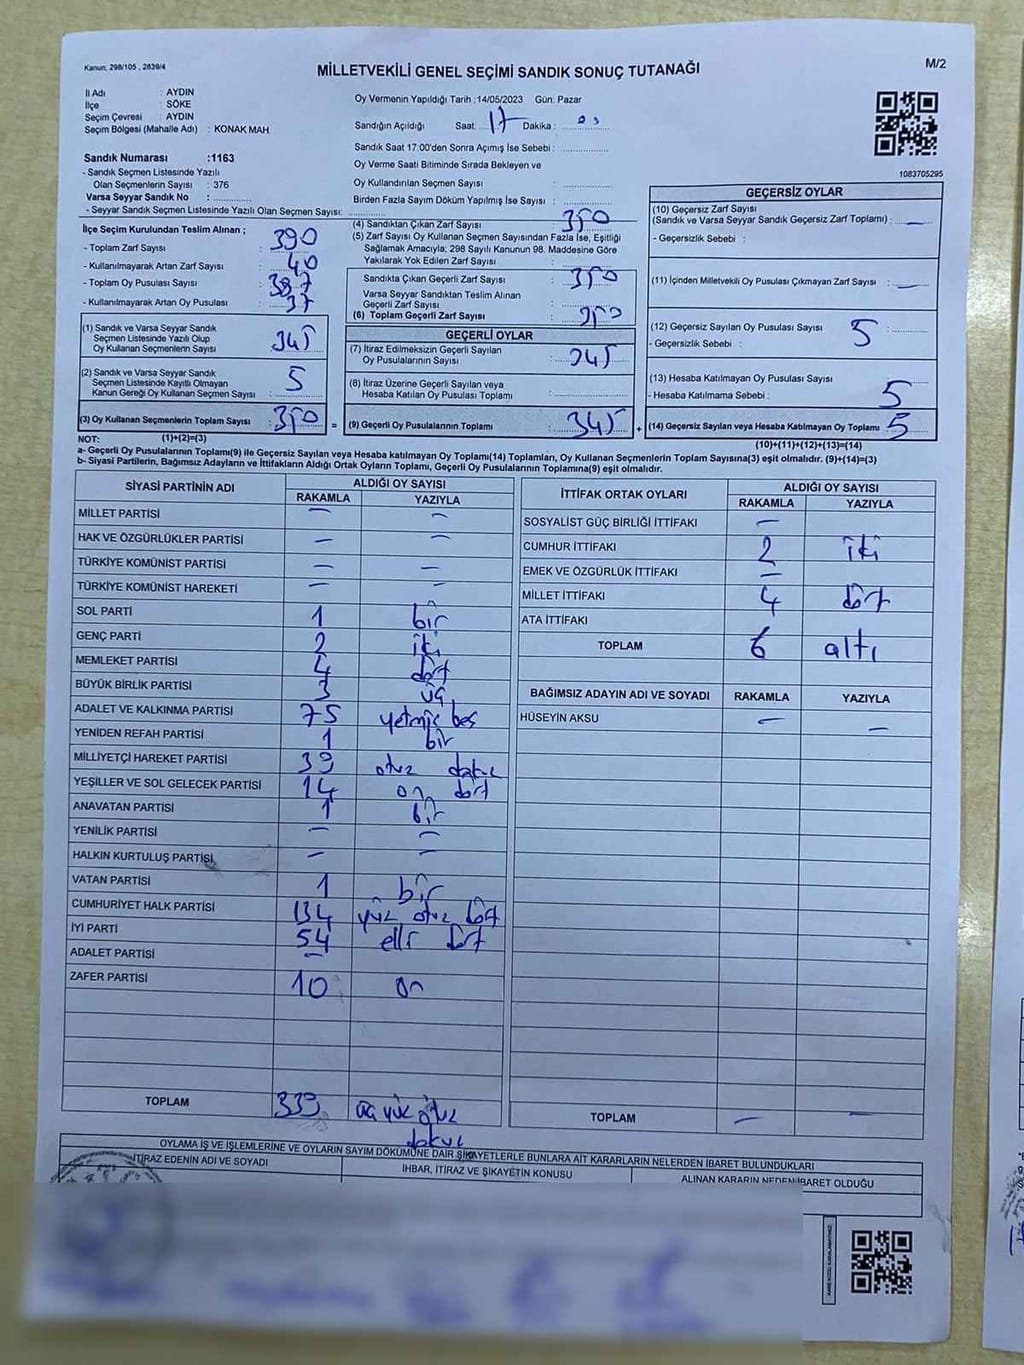 Kanun; 298/105 , 2839/4
MİLLETVEKİLİ GENEL SEÇİMİ SANDIK SONUÇ TUTANAĞI
M/2
İl Adı : AYDIN
İlçe : SÖKE
Seçim Çevresi : AYDIN
Seçim Bölgesi (Mahalle Adı) : KONAK MAH.
Sandık Numarası :1163
- Sandık Seçmen Listesinde Yazılı
Olan Seçmenlerin Sayısı : 376
Varsa Seyyar Sandık No :
- Seyyar Sandık Seçmen Listesinde Yazılı Olan Seçmen Sayısı:
Oy Vermenin Yapıldığı Tarih :14/05/2023 Gün: Pazar
Sandığın Açıldığı Saat: 17 Dakika : 00
Sandık Saat 17:00'den Sonra Açımış İse Sebebi :
Oy Verme Saati Bitiminde Sırada Bekleyen ve
Oy Kullandırılan Seçmen Sayısı :
Birden Fazla Sayım Döküm Yapılmış İse Sayısı :
1083705295
İlçe Seçim Kurulundan Teslim Alınan ;
- Toplam Zarf Sayısı : 390
- Kullanılmayarak Artan Zarf Sayısı : 40
- Toplam Oy Pusulası Sayısı : 387
- Kullanılmayarak Artan Oy Pusulası : 37
(1) Sandık ve Varsa Seyyar Sandık
Seçmen Listesinde Yazılı Olup
Oy Kullanan Seçmenlerin Sayısı : 345
(2) Sandık ve Varsa Seyyar Sandık
Seçmen Listesinde Kayıtlı Olmayan
Kanun Gereği Oy Kullanan Seçmen Sayısı : 5
(3) Oy Kullanan Seçmenlerin Toplam Sayısı : 350
(4) Sandıktan Çıkan Zarf Sayısı : 350
(5) Zarf Sayısı Oy Kullanan Seçmen Sayısından Fazla İse, Eşitliği
Sağlamak Amacıyla; 298 Sayılı Kanunun 98. Maddesine Göre
Yakılarak Yok Edilen Zarf Sayısı :
Sandıkta Çıkan Geçerli Zarf Sayısı : 350
Varsa Seyyar Sandıktan Teslim Alınan
Geçerli Zarf Sayısı :
(6) Toplam Geçerli Zarf Sayısı : 350
GEÇERLİ OYLAR
(7) İtiraz Edilmeksizin Geçerli Sayılan
Oy Pusulalarının Sayısı : 345
(8) İtiraz Üzerine Geçerli Sayılan veya
Hesaba Katılan Oy Pusulası Toplamı :
= (9) Geçerli Oy Pusulalarının Toplamı : 345 +
GEÇERSİZ OYLAR
(10) Geçersiz Zarf Sayısı
(Sandık ve Varsa Seyyar Sandık Geçersiz Zarf Toplamı) : —
- Geçersizlik Sebebi :
(11) İçinden Milletvekili Oy Pusulası Çıkmayan Zarf Sayısı : —
(12) Geçersiz Sayılan Oy Pusulası Sayısı : 5
- Geçersizlik Sebebi :
(13) Hesaba Katılmayan Oy Pusulası Sayısı
- Hesaba Katılmama Sebebi : 5
(14) Geçersiz Sayılan veya Hesaba Katılmayan Oy Toplamı : 5
NOT: (1)+(2)=(3)
(10)+(11)+(12)+(13)=(14)
a- Geçerli Oy Pusulalarının Toplamı(9) ile Geçersiz Sayılan veya Hesaba katılmayan Oy Toplamı(14) Toplamları, Oy Kullanan Seçmenlerin Toplam Sayısına(3) eşit olmalıdır. (9)+(14)=(3)
b- Siyasi Partilerin, Bağımsız Adayların ve İttifakların Aldığı Ortak Oyların Toplamı, Geçerli Oy Pusulalarının Toplamına(9) eşit olmalıdır.
SİYASİ PARTİNİN ADI ALDIĞI OY SAYISI
RAKAMLA YAZIYLA
MİLLET PARTİSİ — —
HAK VE ÖZGÜRLÜKLER PARTİSİ — —
TÜRKİYE KOMÜNİST PARTİSİ — —
TÜRKİYE KOMÜNİST HAREKETİ — —
SOL PARTİ 1 bir
GENÇ PARTİ 2 iki
MEMLEKET PARTİSİ 4 dört
BÜYÜK BİRLİK PARTİSİ 3 üç
ADALET VE KALKINMA PARTİSİ 75 yetmiş beş
YENİDEN REFAH PARTİSİ 1 bir
MİLLİYETÇİ HAREKET PARTİSİ 39 otuz dokuz
YEŞİLLER VE SOL GELECEK PARTİSİ 14 on dört
ANAVATAN PARTİSİ 1 bir
YENİLİK PARTİSİ — —
HALKIN KURTULUŞ PARTİSİ — —
VATAN PARTİSİ 1 bir
CUMHURİYET HALK PARTİSİ 134 yüz otuz dört
İYİ PARTİ 54 elli dört
ADALET PARTİSİ —
ZAFER PARTİSİ 10 on
TOPLAM 339 üç yüz otuz
dokuz
İTTİFAK ORTAK OYLARI ALDIĞI OY SAYISI
RAKAMLA YAZIYLA
SOSYALİST GÜÇ BİRLİĞİ İTTİFAKI —
CUMHUR İTTİFAKI 2 iki
EMEK VE ÖZGÜRLÜK İTTİFAKI —
MİLLET İTTİFAKI 4 dört
ATA İTTİFAKI
TOPLAM 6 altı
BAĞIMSIZ ADAYIN ADI VE SOYADI RAKAMLA YAZIYLA
HÜSEYİN AKSU — —
TOPLAM — —
OYLAMA İŞ VE İŞLEMLERİNE VE OYLARIN SAYIM DÖKÜMÜNE DAİR ŞİKAYETLERLE BUNLARA AİT KARARLARIN NELERDEN İBARET BULUNDUKLARI
İTİRAZ EDENİN ADI VE SOYADI
İHBAR, İTİRAZ VE ŞİKAYETİN KONUSU
ALINAN KARARIN NEDEN İBARET OLDUĞU